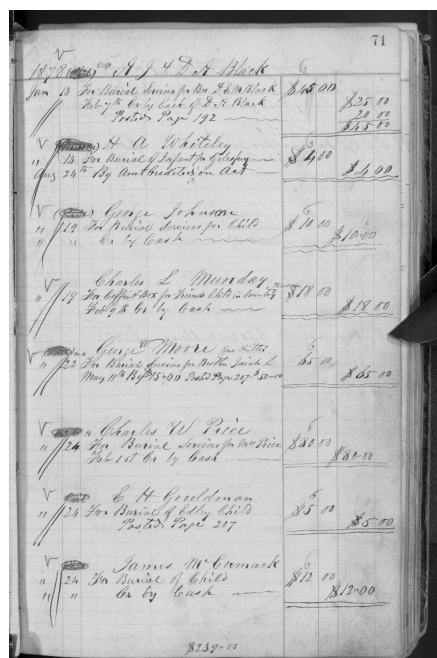 71
1878 A J & D A Black
Jan 13 For Burial Services for Bro D E M Black $45 00
Feb 7th Cr by Cash of D A Black $25 00
Posted Page 192 20 00
$45 00
H A Whiteley
" 14 For Burial of Infant for $4 00
Aug 24th By Amt Credited on Act $4 00
George Johnson
" 19 For Burial Services for Child $10 00
" " Cr by Cash $10-00
Charles L Munday
" 19 For Coffin & Box for Friends Child in Country $18 00
Feb 9th Cr by Cash $18 00
George W Moore
" 22 For Burial Services for Brother 65 00
May 11th By $15-00 Posted Page 207 $50-00 $65 00
Charles W Price
" 24 For Burial Services for Mrs Price $80 00
Feb 1st Cr by Cash $80-00
C H Gouldman
" 24 For Burial of Child $5 00
Posted Page 207 $5.00
James McCormack
" 24 For Burial of Child $12 00
" " Cr by Cash $12-00
$239-00